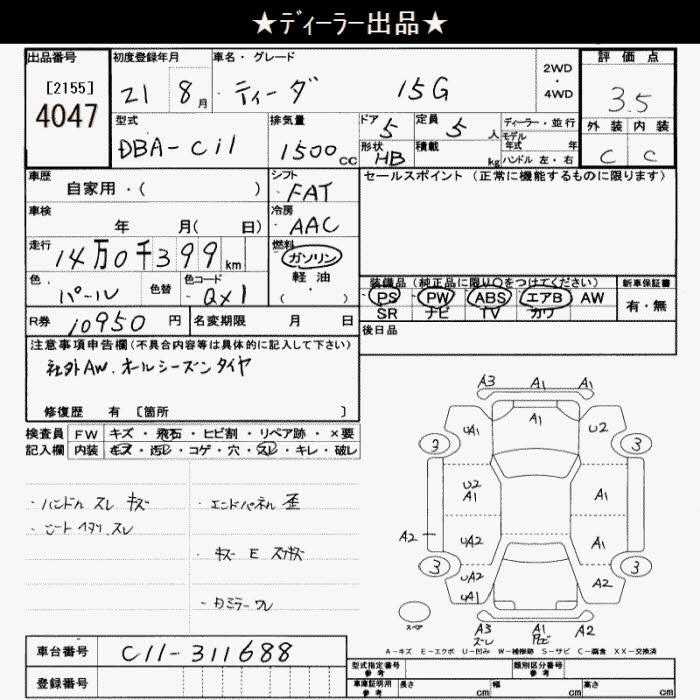 ★ディーラー出品★
出品番号 初度登録年月 車名・グレード 2WD・4WD 評価点
[2155] 4047 21 8月 ティーダ 15G 3.5
型式 排気量 ドア 5 定員 5人 ディーラー・並行 外装 内装
モデル年式 年
DBA-C11 1500cc 形状 HB 積載 kg ハンドル 左・右 C C
車歴 シフト セールスポイント (正常に機能するものに限ります)
自家用・( ) FAT
車検 年 月( 日) 冷房 AAC
走行 14万0千399km 燃料 ガソリン・軽油・( )
色 パール 色替 色コード QX1
装備品 (純正品に限り○をつけてください) 新車保証書
PS PW ABS エアB AW 有・無
SR ナビ TV カワ
R券 10950円 名変期限 月 日 後日品
注意事項申告欄(不具合内容等は具体的に記入して下さい)
社外AW、オールシーズンタイヤ
修復歴 有 [箇所 ]
検査員 FW キズ・飛石・ヒビ割・リペア跡・×要
記入欄 内装 キズ・汚レ・コゲ・穴・スレ・キレ・破レ
・ハンドル スレ キズ
・エンドパネル 歪
A3 A1 A1
A1
UA1 U2
3 3
U2
A1 A1
A2 UA2 A1
3 3
UA2 A2
UA1
スペア
A3 A1 A2
A-キズ E-エクボ U-凹み W-補修跡 S-サビ C-腐食 XX-交換済
車台番号 C11-311688
登録番号
型式指定番号 参考 類別区分番号 参考
車庫証明用 参考 長さ cm 幅 cm 高さ cm